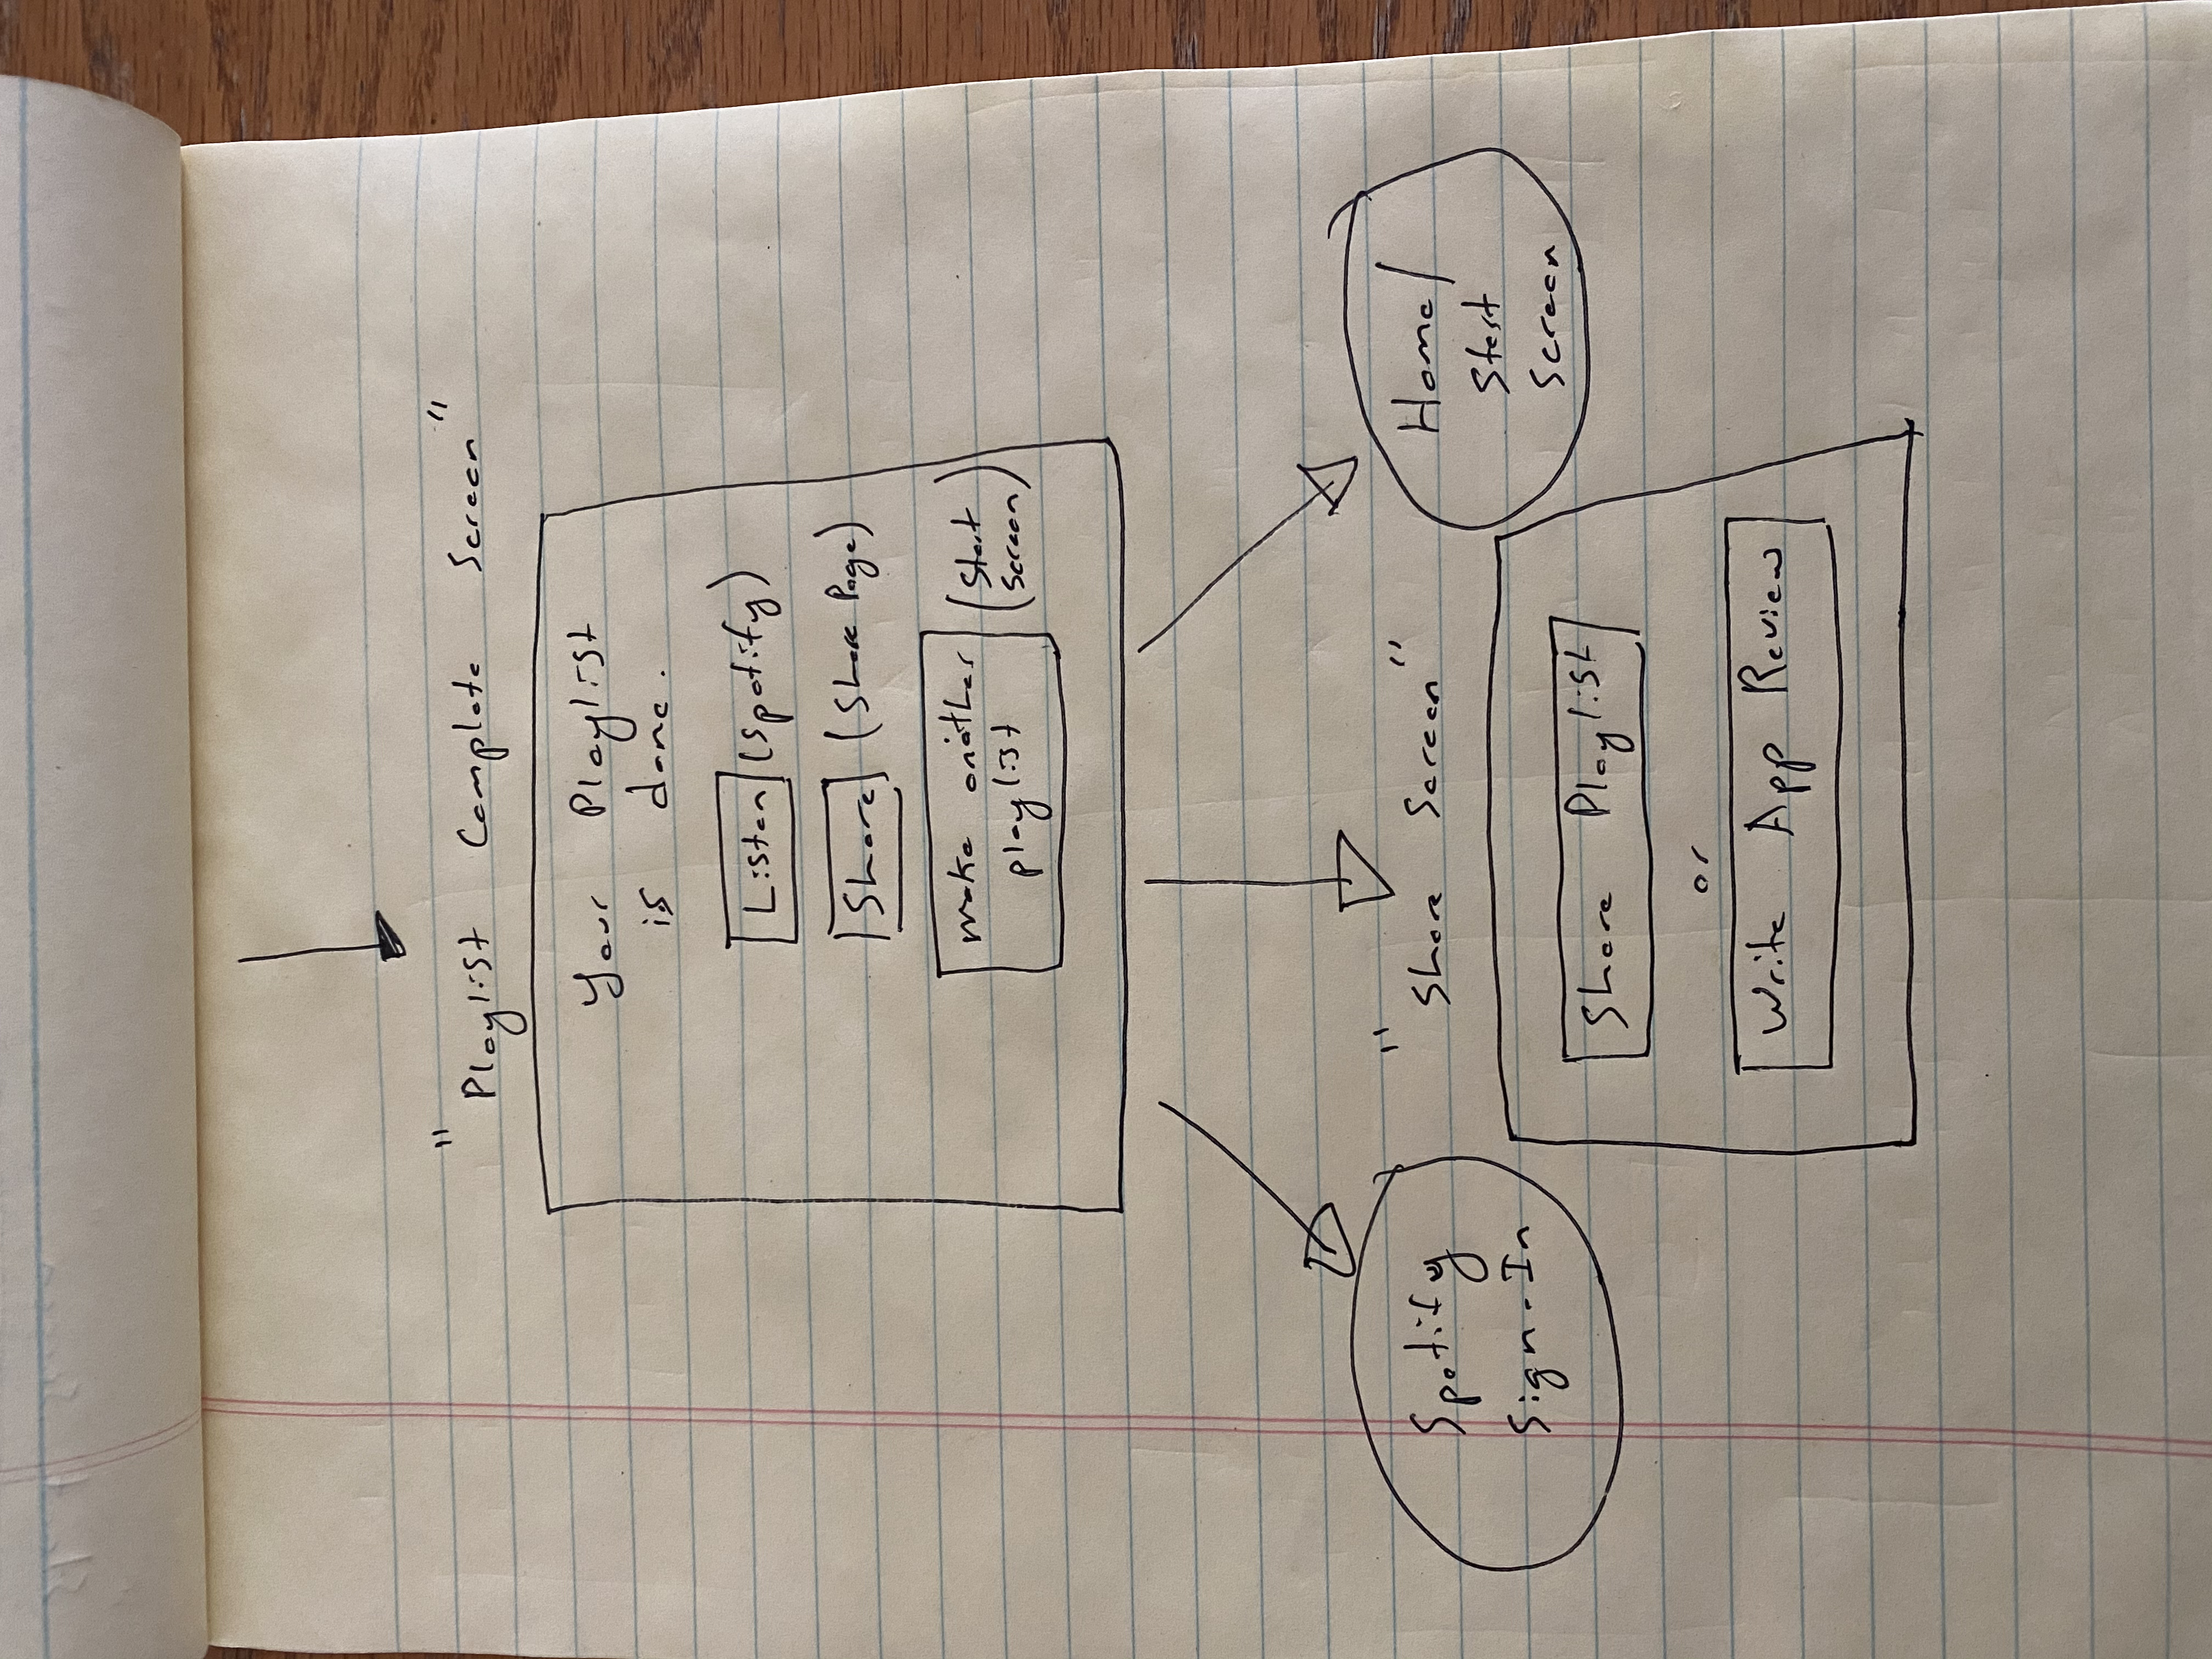 "Playlist Complete Screen"
Your Playlist
is done.
Listen (Spotify)
Share (Share Page)
make another
playlist
(Start
Screen)
Spotify
Sign-In
"Share Screen"
Home/
Start
Screen
Share Playlist
or
Write App Review